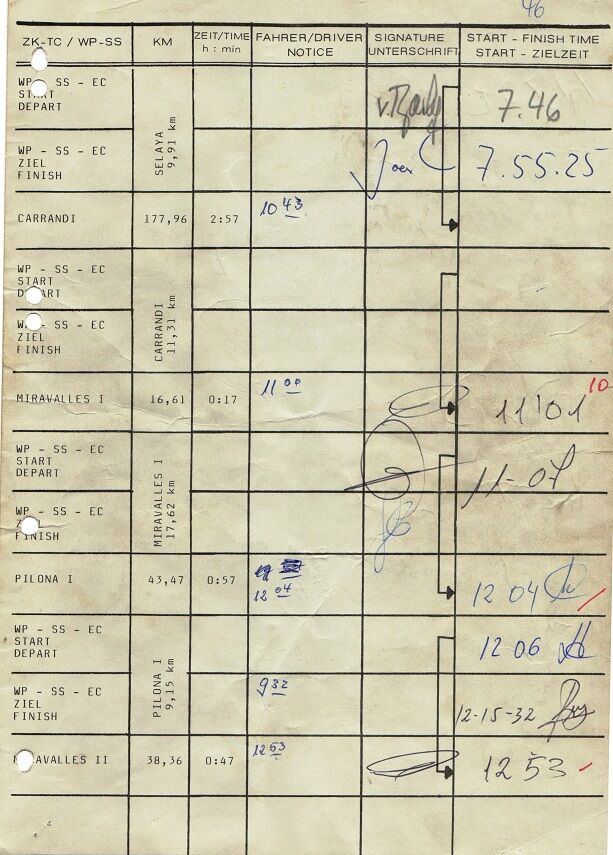 46
ZK-TC / WP-SS KM ZEIT/TIME FAHRER/DRIVER SIGNATURE START - FINISH TIME
h : min NOTICE UNTERSCHRIFT START - ZIELZEIT
WP - SS - EC
START
DEPART
7.46
SELAYA
9,91 km
WP - SS - EC
ZIEL
FINISH
7.55.25
CARRANDI 177,96 2:57 10 43
WP - SS - EC
START
DEPART
CARRANDI
11,31 km
WP - SS - EC
ZIEL
FINISH
MIRAVALLES I 16,61 0:17 11 00 11'01 10
WP - SS - EC
START
DEPART
11-07
MIRAVALLES I
17,62 km
WP - SS - EC
ZIEL
FINISH
PILONA I 43,47 0:57 12 04 12 04
WP - SS - EC
START
DEPART
12 06
PILONA I
9,15 km
WP - SS - EC
ZIEL
FINISH
9 32 12-15-32
MIRAVALLES II 38,36 0:47 12 53 12 53